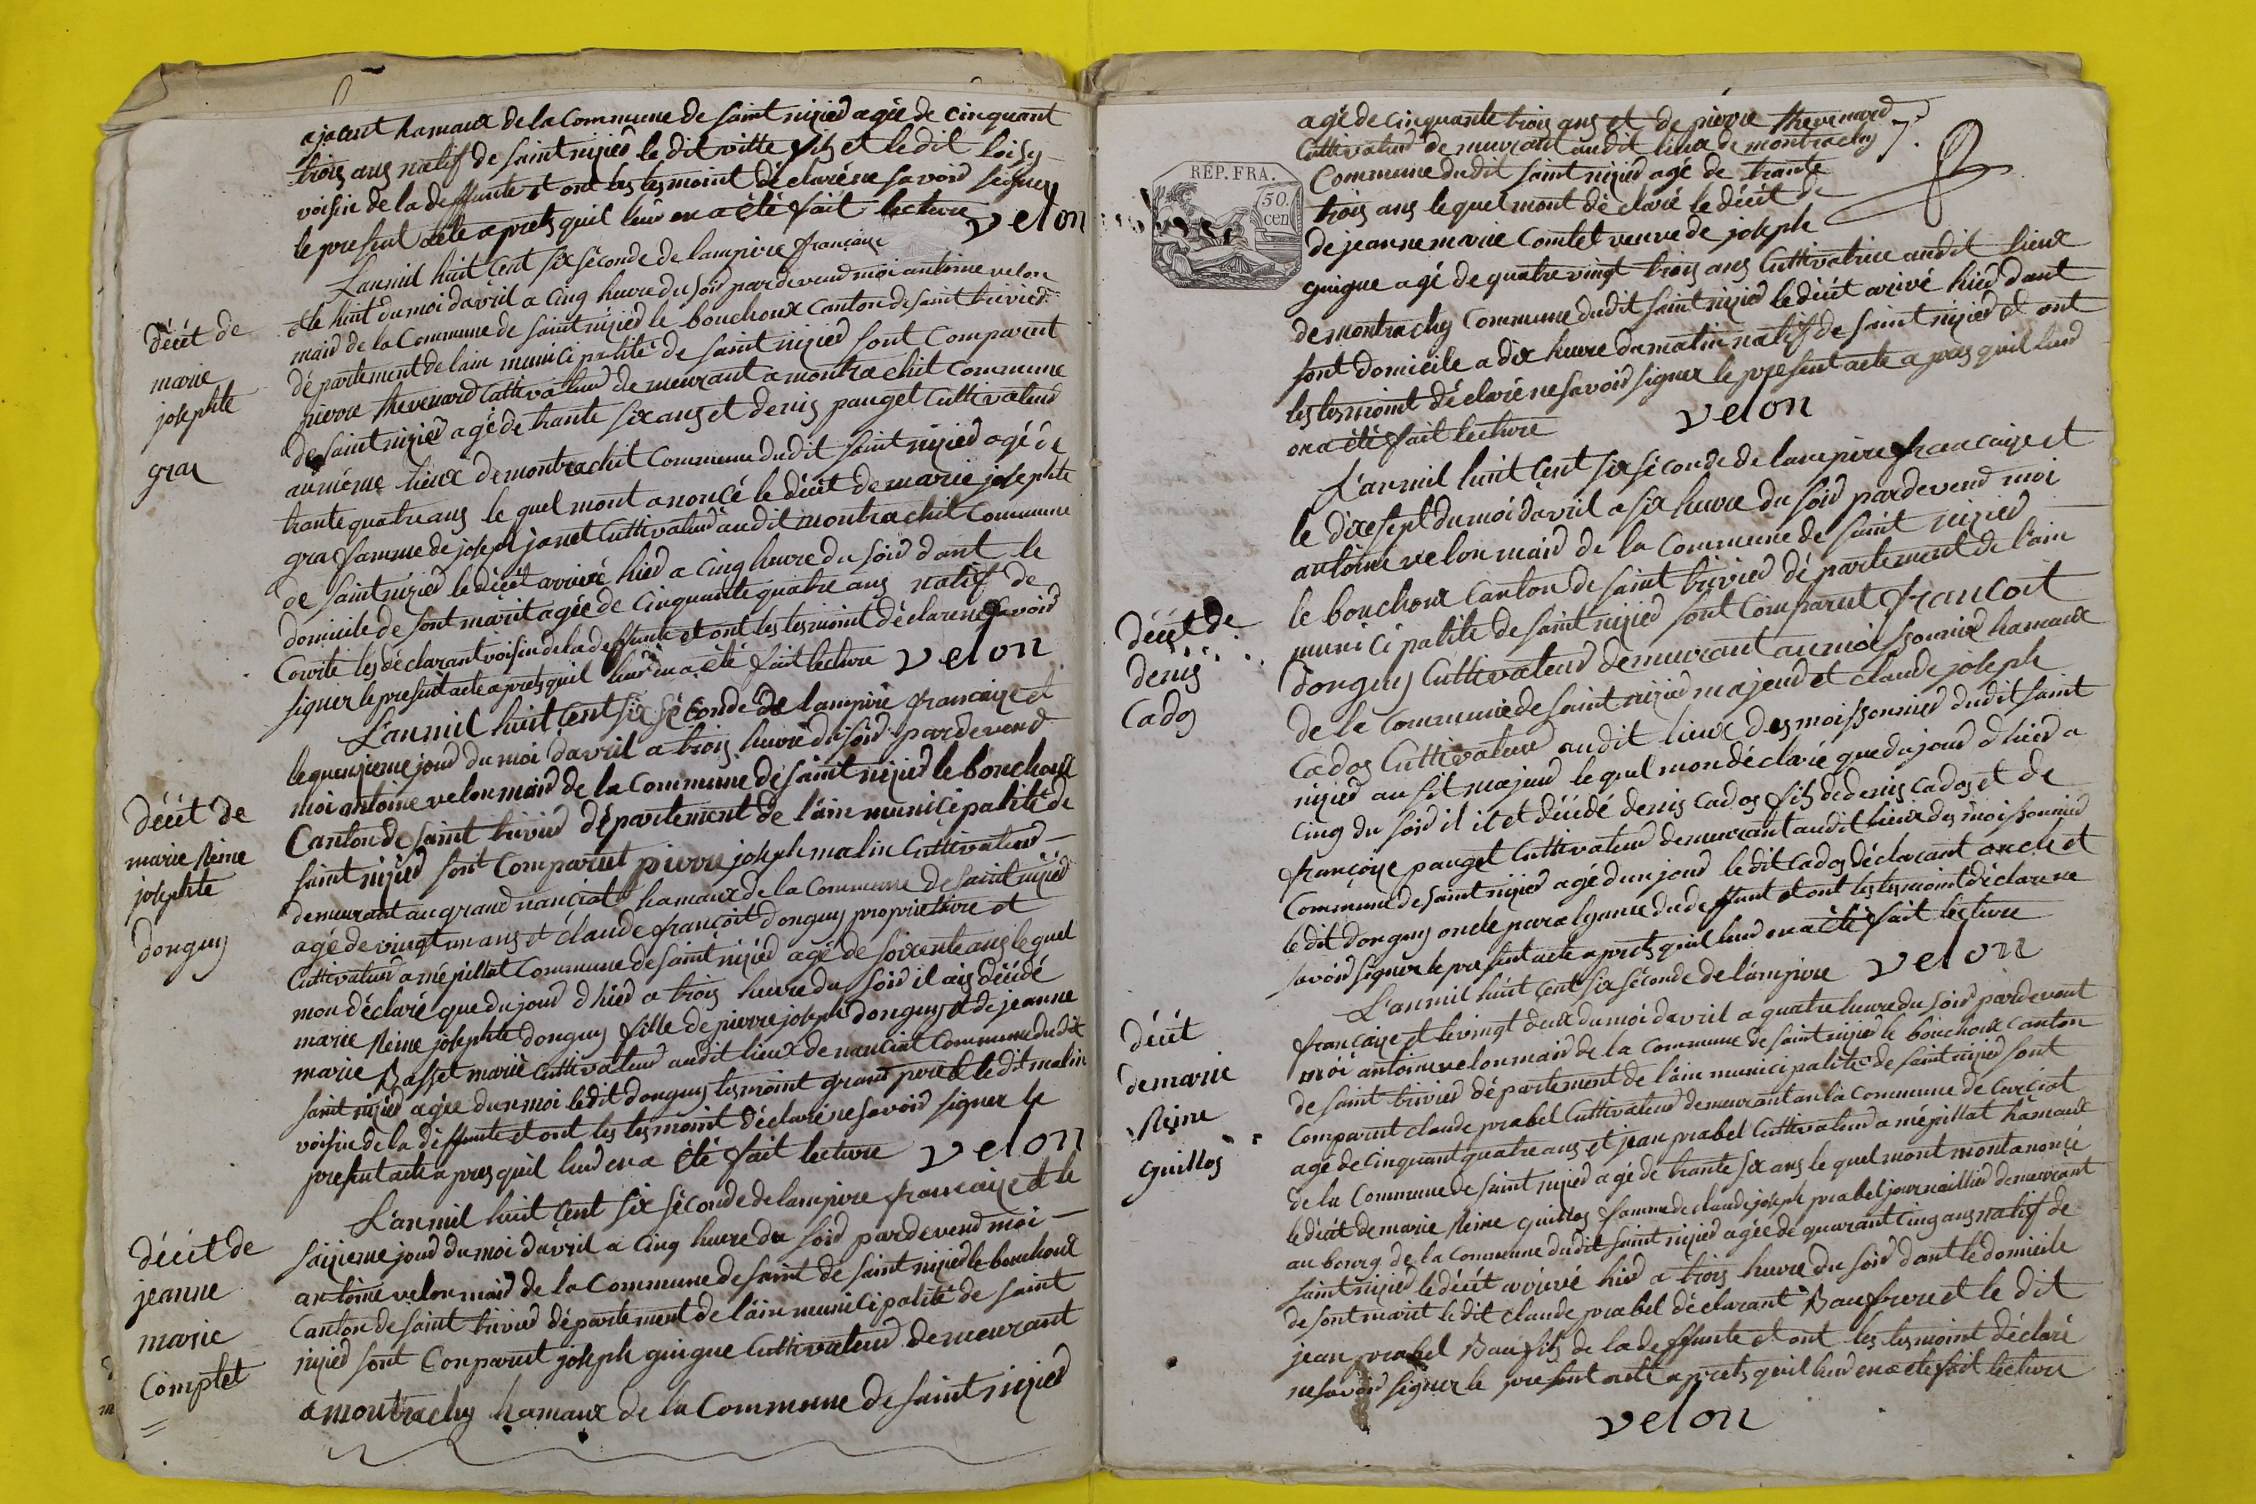 ajacent hamaux de la Commune de saint nizied agée de cinquant
trois ans natif de saint nizied le dit vitte fils et le dit loisy
voisin de la deffunte et ont les tesmoint déclaré ne savoir signer
le present acte aprets quil leur en a été fait lecture velon
décét de
marie
josephte
gras
L'anmil huit cent six séconde de lampire française
et le huit du moi davril a cinq heure du soir pardevend moi antoine velon
maid de la Commune de saint nizied le bouchoux canton de saint trivied
département de lain municipalité de saint nizied sont Comparent
pierre thevenard Cultivateur demeurant a montrachit Commune
de saint nizied agé de trante six ans et denis pauget Cultivateur
au même lieux de montrachit Commune dudit saint nizied agé de
trante quatre ans le quel mont anoncé le décét de marie josephte
gras famme de joseph janet Cultivateur audit montrachit Commune
de saint nizied le décét arrivé hied a cinq heure du soir dant le
domicile de sont marit agée de cinquante quatre ans natif de
Courte les déclarant voisin de la deffunte et ont les tesmoint déclare ne savoir
signer le present acte aprets quil leur en a été fait lecture velon
décét de
marie Reine
josephte
donguy
L'anmil huit cent six séconde de lampire française et
le quenzieme jour du moi davril a trois heure du soir pardevend
moi antoine velon maid de la Commune de saint nizied le bouchoux
Canton de saint trivied département de lain municipalité de
saint nizied sont Comparut pierre joseph malin Cultivateur
demeurant au grand nanciat hamaux de la Commune de saint nizied
agé de vingt un ans et claude françoit donguy proprietaire et
Cultivateur a mépillat Commune de saint nizied agé de soixente ans le quel
mon déclaré que du jour dhied a trois heure du soir il ais décédé
marie Reine josephte donguy fille de pierre joseph donguy et de jeanne
marie Basset mariè Cultivateur audit lieux de nanciat Commune dudit
saint nizied agée dun moi le dit donguy tesmoint grand pere et le dit malin
voisin de la deffunte et ont les tesmoint déclaré ne savoir signer le
present acte apres quil leur en a été fait lecture velon
décét de
jeanne
marie
Comptet
L'anmil huit cent six séconde de lampire française et le
saizieme jour du moi davril a cinq heure du soir pardevend moi
antoine velon maid de la Commune de saint de saint nizied le bouchoux
Canton de saint trivied département de lain municipalité de saint
nizied sont Conparut joseph guigue Cultivateur demeurant
a montrachy hamaux de la Commune de saint nizied
agé de cinquante trois ans et de pierre thevenard
Cultivateur demurant audit lieux de montrachy
Commune dudit saint nizied agé de trante
trois ans le quel mont déclaré le décét de
de jeanne marie Comtet veuve de joseph
guigue agé de quatre vingt trois ans Cultivatrice audit lieux
de montrachy Commune dudit saint nizied le décét arivé hied dant
sont domicile a dix heure du matin natif de saint nizied et ont
les tesmoint déclaré ne savoir signer le present acte apres quil leur
en a été fait lecture velon
7.
RÉP. FRA.
50.
cen
décét de
denis
Cados
L'anmil huit cent six séconde de lampire francaize et
le dixesept du moi davril a six heure du soir pardevend moi
antoine velon maid de la Commune de saint nizied
le bouchoux Canton de saint trivied département de lain
municipalité de saint nizied sont Comparut françoit
donguy Cultivateur demeurant au moissonnied hamaux
de le Commune de saint nizied majeur et claude joseph
Cados Cultivateur audit lieux des moissonnied dudit saint
nizied ausit majeur le quel mon déclaré que du jour dhied a
cinq du soir il it et décédé denis Cados fils de denis Cados et de
françoise pauget Cultivateur demeurant audit lieux des moissonnied
Commune de saint nizied agé dun jour le dit Cados déclarant oncle et
le dit donguy oncle par alyance du deffunt et ont les tesmoint déclare ne
savoir signer le present acte aprets quil leur en a été fait lecture
velon
décét
de marie
Reine
guillos
L'anmil huit cent six séconde de lampire
française et le vingt deux du moi davril a quatre heure du soir pardevent
moi antoine velon maid de la Commune de saint nizied le bouchoux canton
de saint trivied département de lain municipalité de saint nizied sont
Comparut claude prabel Cultivateur demeurant an la commune de Curciat
agé de cinquant quatre ans et jean prabel Cultivateur a mépillat hamaux
de la Commune de saint nizied agé de trante six ans le quel mont mont anoncé
le décét de marie Reine guillos famme de claude joseph prabel journaillied demeurant
au bourg de la Commune dudit saint nizied agée de quarant cinq ans natif de
saint nizied le décét arrivé hied a trois heure du soir dant le domicile
de sont marit le dit claude prabel déclarant Baufrere et le dit
jean prabel Baufils de la deffunte et ont les tesmoint déclaré
ne savoir signer le present acte aprets quil leur en a été fait lecture
velon